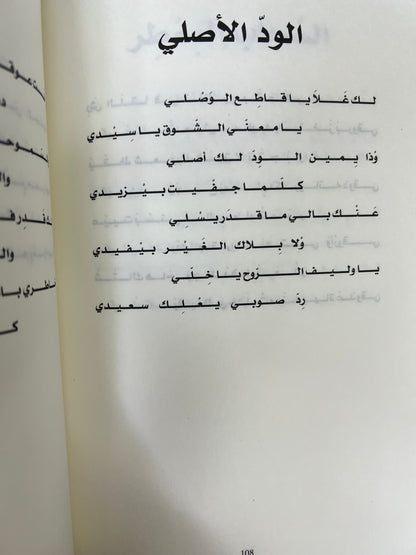 الودّ الأصلي
لك غَلا يا قاطع الوَصْلي
يا معنّي الشّوق يا سِيْدي
وْذا يِمين الوَدّ لك أصلي
كلّما جفّيت بيْزيدي
عَنْك بالي ما قدَر يسْلي
وْلا بلاك الغَيْر بيْفيدي
يا وليف الرّوح يا خِلّي
ردّ صوبي يعْلِك سعيدي
108